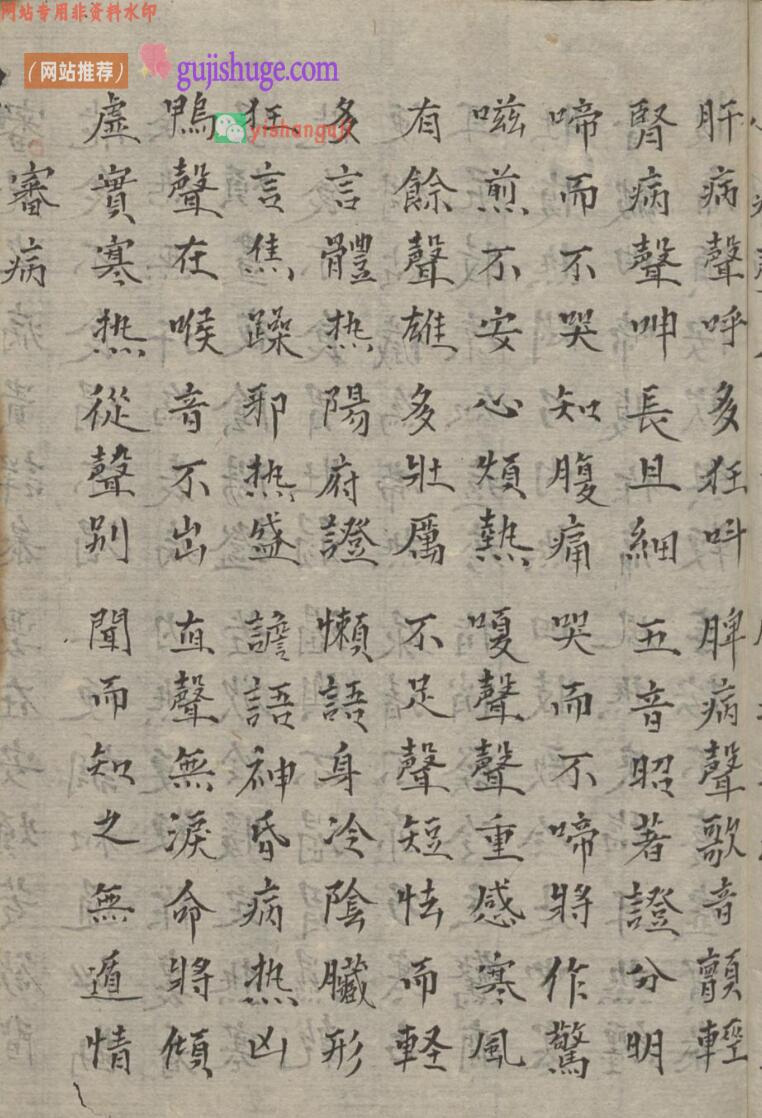 网站专用非资料水印
（网站推荐）
gujishuge.com
yishanguji
肝病聲呼多狂呌 脾病聲歌音顫輕
腎病聲呻長且細 五音昭著證分明
啼而不哭知腹痛 哭而不啼將作驚
嗞煎不安心煩熱 嗄聲聲重感寒風
有餘聲雄多壯厲 不足聲短怯而軽
多言體热陽府證 懒語身冷陰臟形
狂言焦躁邪热盛 譫語神昏病热凶
鴨聲在喉音不出 直聲無淚命將傾
虛實寒热從聲别 聞而知之無遁情
審病